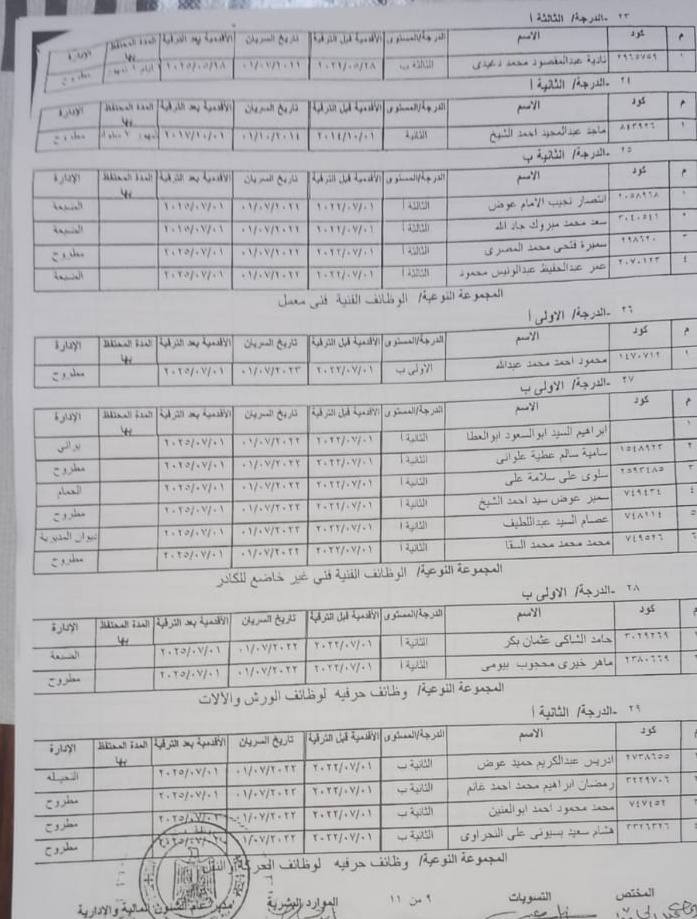 ٢٣ -الدرجة/ الثالثة أ
م كود الاسم الدرجة/المستوى الأقدمية قبل الترقية تاريخ السريان الأقدمية بعد الترقية المدة المحتفظ بها الإدارة
١ ٢٩٦٥٧٥٩ نادية عبدالمقصود محمد دعيدى الثالثة ب مطروح
٢٤ -الدرجة/ الثانية أ
م كود الاسم الدرجة/المستوى الأقدمية قبل الترقية تاريخ السريان الأقدمية بعد الترقية المدة المحتفظ بها الإدارة
١ ٨٤٣٩٢٦ ماجد عبدالمجيد احمد الشيخ الثانية ٢٠١٤/١٠/٠١ ٠١/١٠/٢٠١٤ ٢٠١٧/١٠/٠١ مطروح
٢٥ -الدرجة/ الثانية ب
م كود الاسم الدرجة/المستوى الأقدمية قبل الترقية تاريخ السريان الأقدمية بعد الترقية المدة المحتفظ بها الإدارة
١ ٢٠٥٨٩٦٨ انتصار نجيب الامام عوض الثالثة أ ٢٠٢٢/٠٧/٠١ ٠١/٠٧/٢٠٢٢ ٢٠٢٥/٠٧/٠١ الضبعة
٢ ٣٠٤٠٥٤١ سعد محمد مبروك جاد الله الثالثة أ ٢٠٢٢/٠٧/٠١ ٠١/٠٧/٢٠٢٢ ٢٠٢٥/٠٧/٠١ الضبعة
٣ سميرة فتحى محمد المصرى الثالثة أ ٢٠٢٢/٠٧/٠١ ٠١/٠٧/٢٠٢٢ ٢٠٢٥/٠٧/٠١ مطروح
٤ ٢٠٧٠١٢٣ عمر عبدالحفيظ عبدالونيس محمود الثالثة أ ٢٠٢٢/٠٧/٠١ ٠١/٠٧/٢٠٢٢ ٢٠٢٥/٠٧/٠١ الضبعة
المجموعة النوعية/ الوظائف الفنية فنى معمل
٢٦ -الدرجة/ الاولى أ
م كود الاسم الدرجة/المستوى الأقدمية قبل الترقية تاريخ السريان الأقدمية بعد الترقية المدة المحتفظ بها الإدارة
١ ١٤٧٠٧١٢ محمود احمد محمد عبدالله الاولى ب ٢٠٢٢/٠٧/٠١ ٠١/٠٧/٢٠٢٣ ٢٠٢٥/٠٧/٠١ مطروح
٢٧ -الدرجة/ الاولى ب
م كود الاسم الدرجة/المستوى الأقدمية قبل الترقية تاريخ السريان الأقدمية بعد الترقية المدة المحتفظ بها الإدارة
١ ابراهيم السيد ابوالسعود ابوالعطا الثانية أ ٢٠٢٢/٠٧/٠١ ٠١/٠٧/٢٠٢٢ ٢٠٢٥/٠٧/٠١ برانى
٢ ١٥٤٨٩٢٣ سامية سالم عطية علوانى الثانية أ ٢٠٢٢/٠٧/٠١ ٠١/٠٧/٢٠٢٢ ٢٠٢٥/٠٧/٠١ مطروح
٣ ٢٥٩٣٤٨٥ سلوى على سلامة على الثانية أ ٢٠٢٢/٠٧/٠١ ٠١/٠٧/٢٠٢٢ ٢٠٢٥/٠٧/٠١ الحمام
٤ ٧٤٩٤٣٤ سمير عوض سيد احمد الشيخ الثانية أ ٢٠٢١/٠٧/٠١ ٠١/٠٧/٢٠٢٢ ٢٠٢٥/٠٧/٠١ مطروح
٥ ٧٤٨٢١٤ عصام السيد عبداللطيف الثانية أ ٢٠٢٢/٠٧/٠١ ٠١/٠٧/٢٠٢٣ ٢٠٢٥/٠٧/٠١ ديوان المديرية
٦ ٧٤٩٥٢٦ محمد محمد محمد السقا الثانية أ ٢٠٢٢/٠٧/٠١ ٠١/٠٧/٢٠٢٢ ٢٠٢٥/٠٧/٠١ مطروح
المجموعة النوعية/ الوظائف الفنية فني غير خاضع للكادر
٢٨ -الدرجة/ الاولى ب
م كود الاسم الدرجة/المستوى الأقدمية قبل الترقية تاريخ السريان الأقدمية بعد الترقية المدة المحتفظ بها الإدارة
٣٠٢٩٢٦٩ حامد الشاكى عثمان بكر الثانية أ ٢٠٢٢/٠٧/٠١ ٠١/٠٧/٢٠٢٢ ٢٠٢٥/٠٧/٠١ الضبعة
٢٣٨٠٦٦٩ ماهر خيرى محجوب بيومى الثانية أ ٢٠٢٢/٠٧/٠١ ٠١/٠٧/٢٠٢٢ ٢٠٢٥/٠٧/٠١ مطروح
المجموعة النوعية/ وظائف حرفيه لوظائف الورش والالات
٢٩ -الدرجة/ الثانية أ
م كود الاسم الدرجة/المستوى الأقدمية قبل الترقية تاريخ السريان الأقدمية بعد الترقية المدة المحتفظ بها الإدارة
٢٧٣٨٦٥٥ ادريس عبدالكريم حميد عوض الثانية ب ٢٠٢٢/٠٧/٠١ ٠١/٠٧/٢٠٢٢ ٢٠٢٥/٠٧/٠١ النجيله
٣٢٢٩٧٠٦ رمضان ابراهيم محمد احمد غانم الثانية ب ٢٠٢٢/٠٧/٠١ ٠١/٠٧/٢٠٢٢ ٢٠٢٥/٠٧/٠١ مطروح
٧٤٧٤٥٢ محمد محمود احمد ابوالعنين الثانية ب ٢٠٢٢/٠٧/٠١ ٠١/٠٧/٢٠٢٢ مطروح
٣٣٢٦٣٢٦ هشام سعيد بسيونى على النحراوى الثانية ب ٢٠٢٢/٠٧/٠١ مطروح
المجموعة النوعية/ وظائف حرفيه لوظائف الحركة والنقل
المختص التسويات ٩ من ١١ الموارد البشرية مدير عام الشئون المالية والادارية